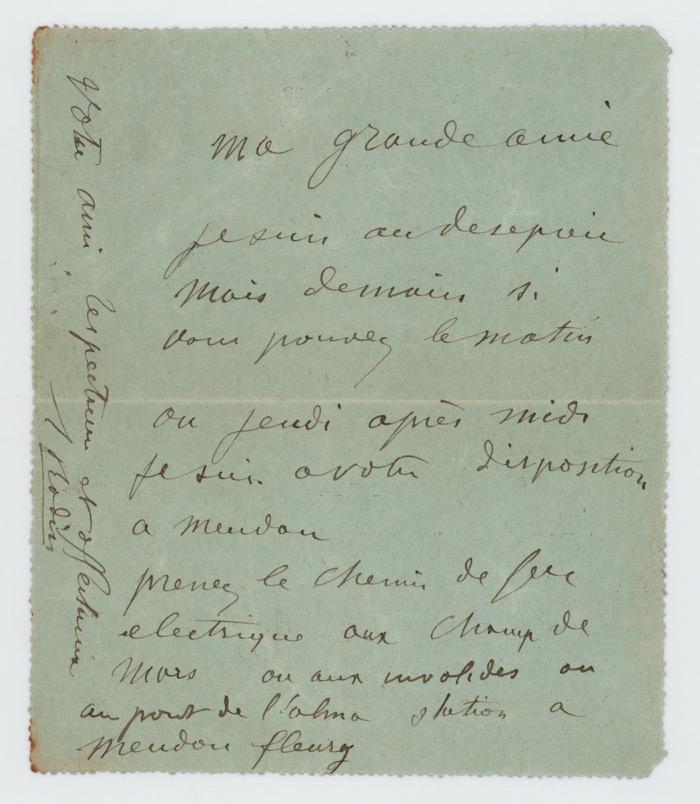 ma grande amie
je suis au desespoir
mais demain si
vous pouvez le matin
ou jeudi après midi
je suis a votre disposition
a meudon
prenez le chemin de fer
electrique aux champ de
mars ou aux invalides ou
au pont de l'alma station a
meudon fleury
Votre ami respectueux et affectueux
A Rodin